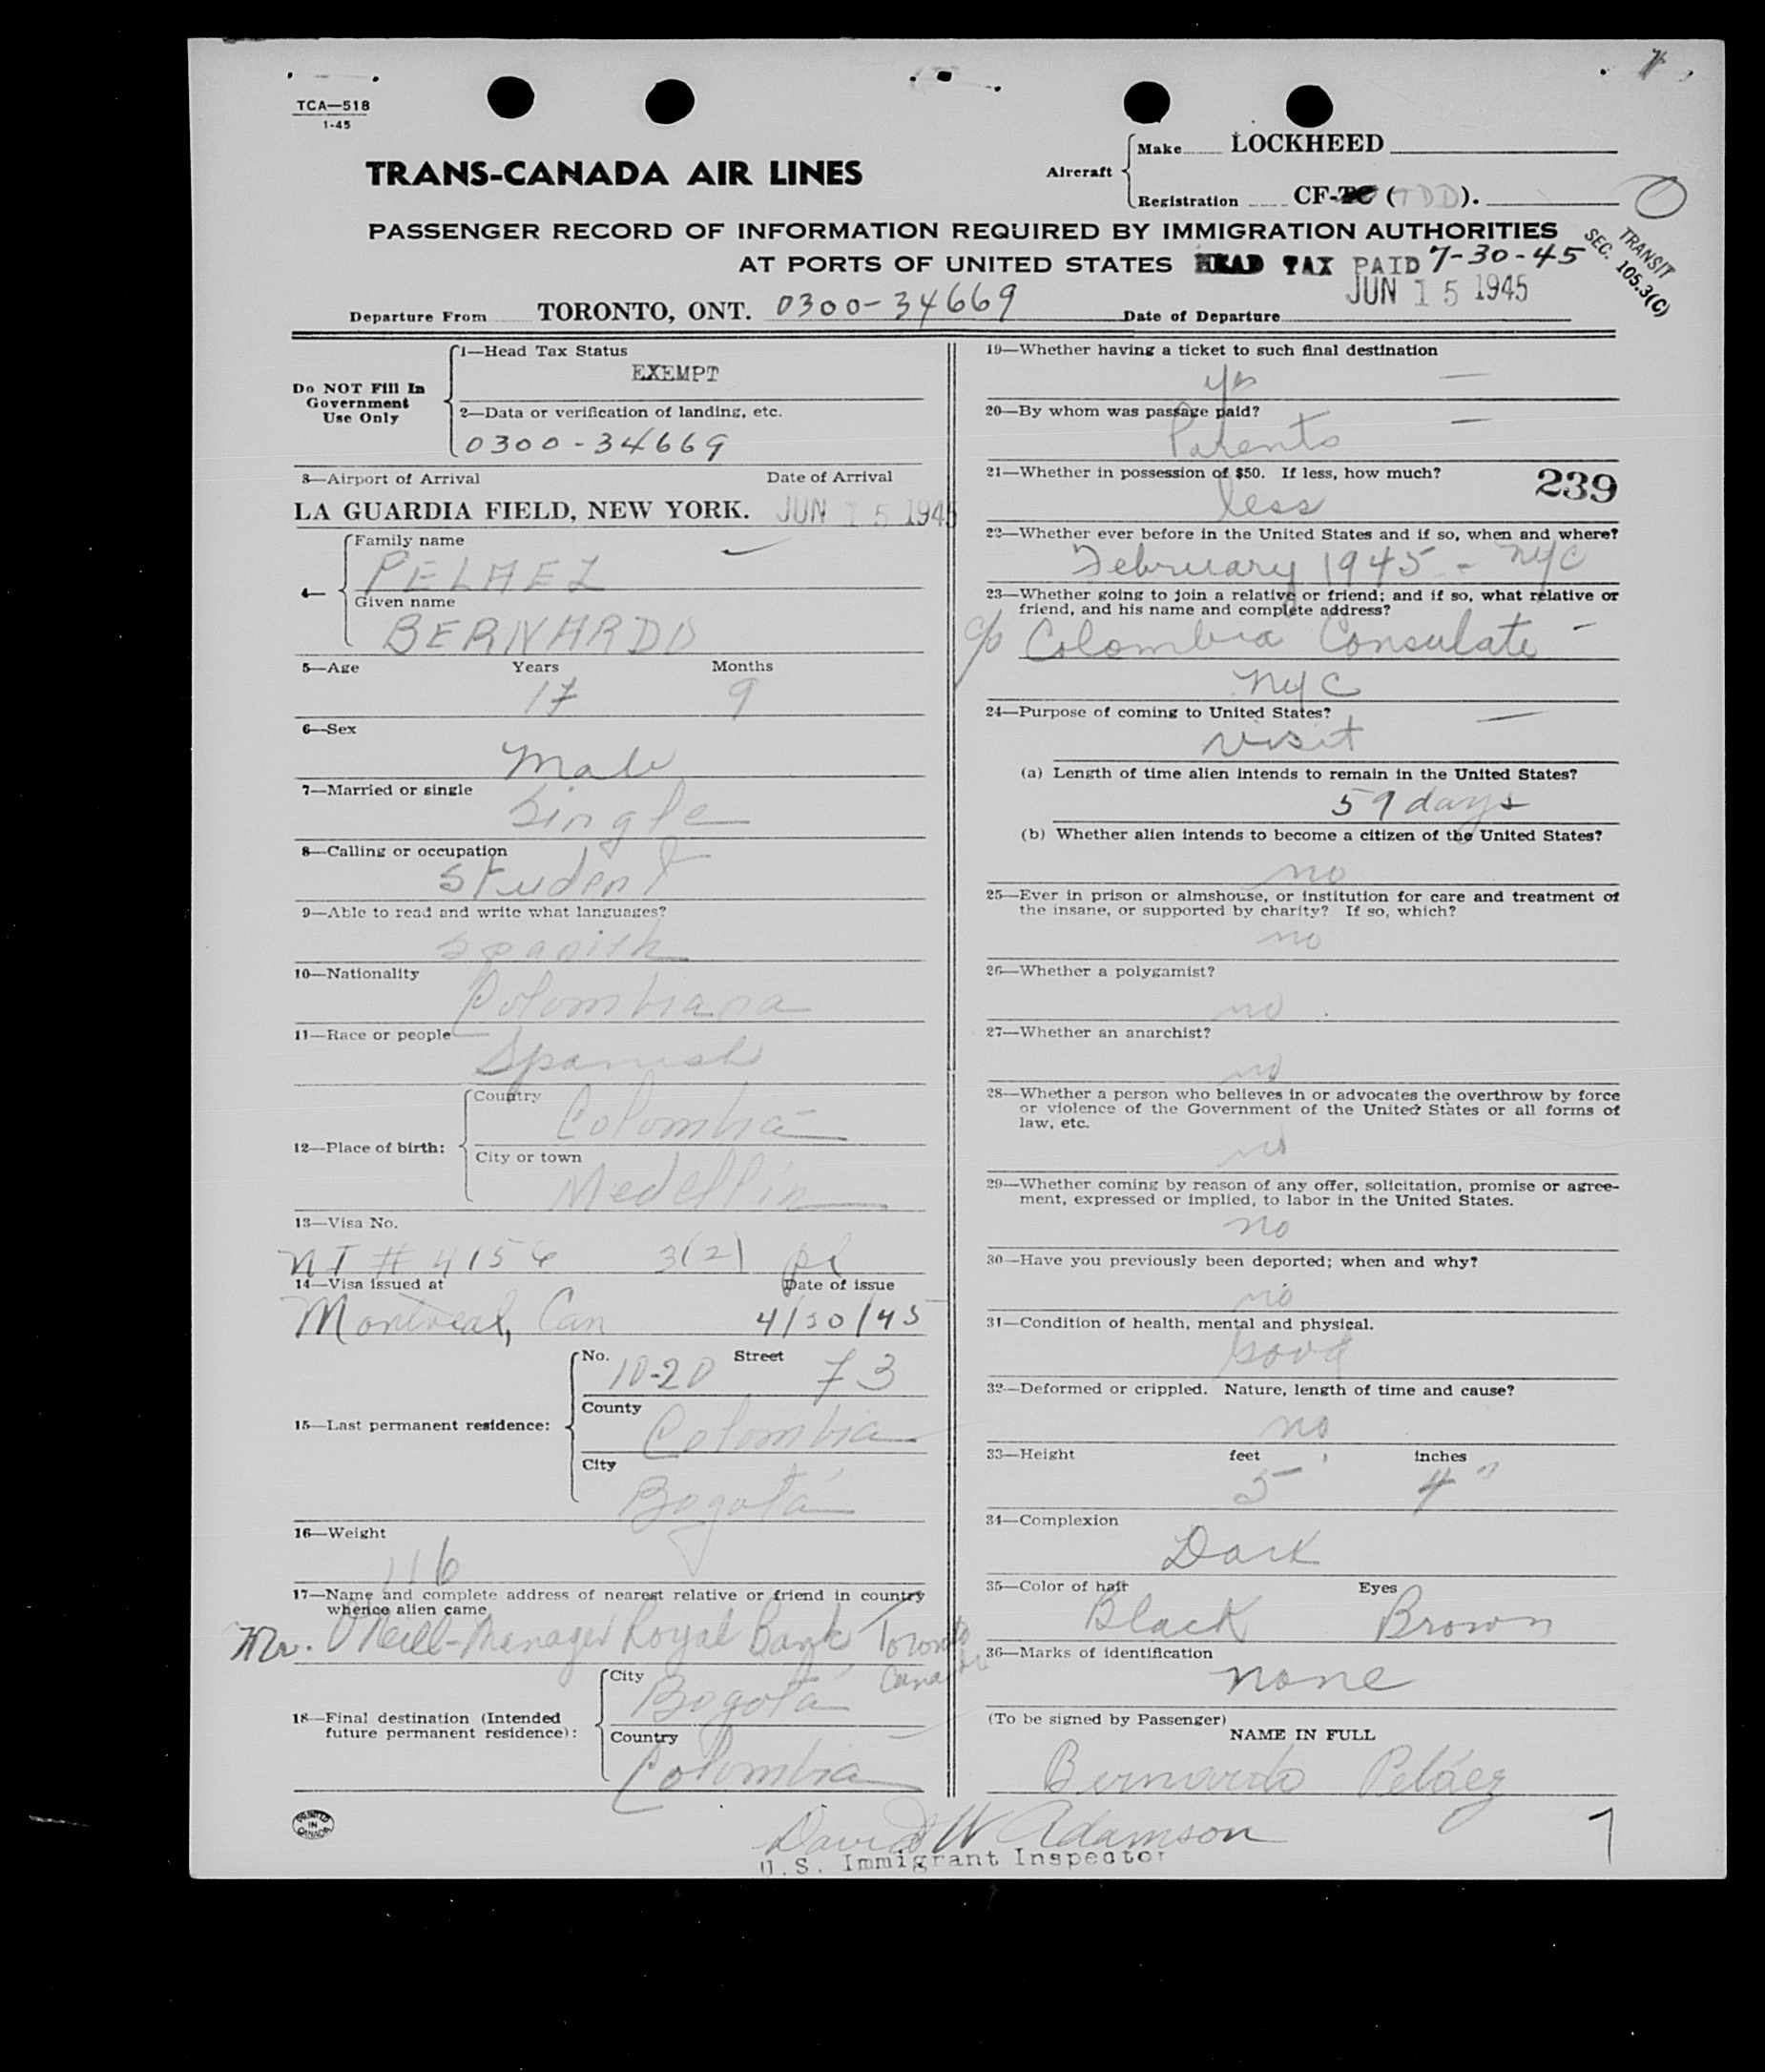 TCA—518
1-45
TRANS-CANADA AIR LINES
Aircraft
Make LOCKHEED
Registration CF-TC (TDD).
PASSENGER RECORD OF INFORMATION REQUIRED BY IMMIGRATION AUTHORITIES
AT PORTS OF UNITED STATES HEAD TAX PAID 7-30-45
TRANSIT
SEC. 105.3(C)
JUN 15 1945
Departure From TORONTO, ONT. 0300-34669 Date of Departure
Do NOT Fill In
Government
Use Only
1—Head Tax Status
EXEMPT
2—Data or verification of landing, etc.
0300-34669
3—Airport of Arrival Date of Arrival
LA GUARDIA FIELD, NEW YORK. JUN 15 1945
4—
Family name
PELAEZ
Given name
BERNARDO
5—Age Years Months
17 9
6—Sex
Male
7—Married or single
Single
8—Calling or occupation
Student
9—Able to read and write what languages?
Spanish
10—Nationality
Colombiana
11—Race or people
Spanish
12—Place of birth:
Country
Colombia
City or town
Medellín
13—Visa No.
NI # 4156 3(2)
14—Visa issued at Date of issue
Montreal, Can 4/30/45
15—Last permanent residence:
No. 10-20 Street 73
County
Colombia
City
Bogotá
16—Weight
116
17—Name and complete address of nearest relative or friend in country
whence alien came
Mr. O'Neill-Manager Royal Bank Toronto
Canada
18—Final destination (Intended
future permanent residence):
City
Bogotá
Country
Colombia
PRINTED
IN
CANADA
19—Whether having a ticket to such final destination
yes
20—By whom was passage paid?
Parents
21—Whether in possession of $50. If less, how much? 239
less
22—Whether ever before in the United States and if so, when and where?
February 1945 - NYC
23—Whether going to join a relative or friend; and if so, what relative or
friend, and his name and complete address?
c/o Colombia Consulate
NYC
24—Purpose of coming to United States?
visit
(a) Length of time alien intends to remain in the United States?
59 days
(b) Whether alien intends to become a citizen of the United States?
no
25—Ever in prison or almshouse, or institution for care and treatment of
the insane, or supported by charity? If so, which?
no
26—Whether a polygamist?
no
27—Whether an anarchist?
no
28—Whether a person who believes in or advocates the overthrow by force
or violence of the Government of the United States or all forms of
law, etc.
no
29—Whether coming by reason of any offer, solicitation, promise or agree-
ment, expressed or implied, to labor in the United States.
no
30—Have you previously been deported; when and why?
no
31—Condition of health, mental and physical.
good
32—Deformed or crippled. Nature, length of time and cause?
no
33—Height feet inches
5' 4"
34—Complexion
Dark
35—Color of hair Eyes
Black Brown
36—Marks of identification
none
(To be signed by Passenger)
NAME IN FULL
Bernardo Peláez
David W Adamson
U.S. Immigrant Inspector